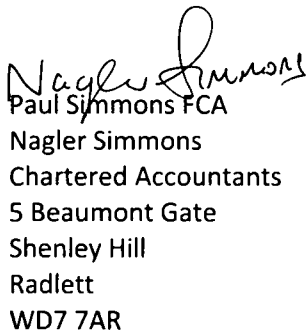 Nagler Simmons
Paul Simmons FCA
Nagler Simmons
Chartered Accountants
5 Beaumont Gate
Shenley Hill
Radlett
WD7 7AR